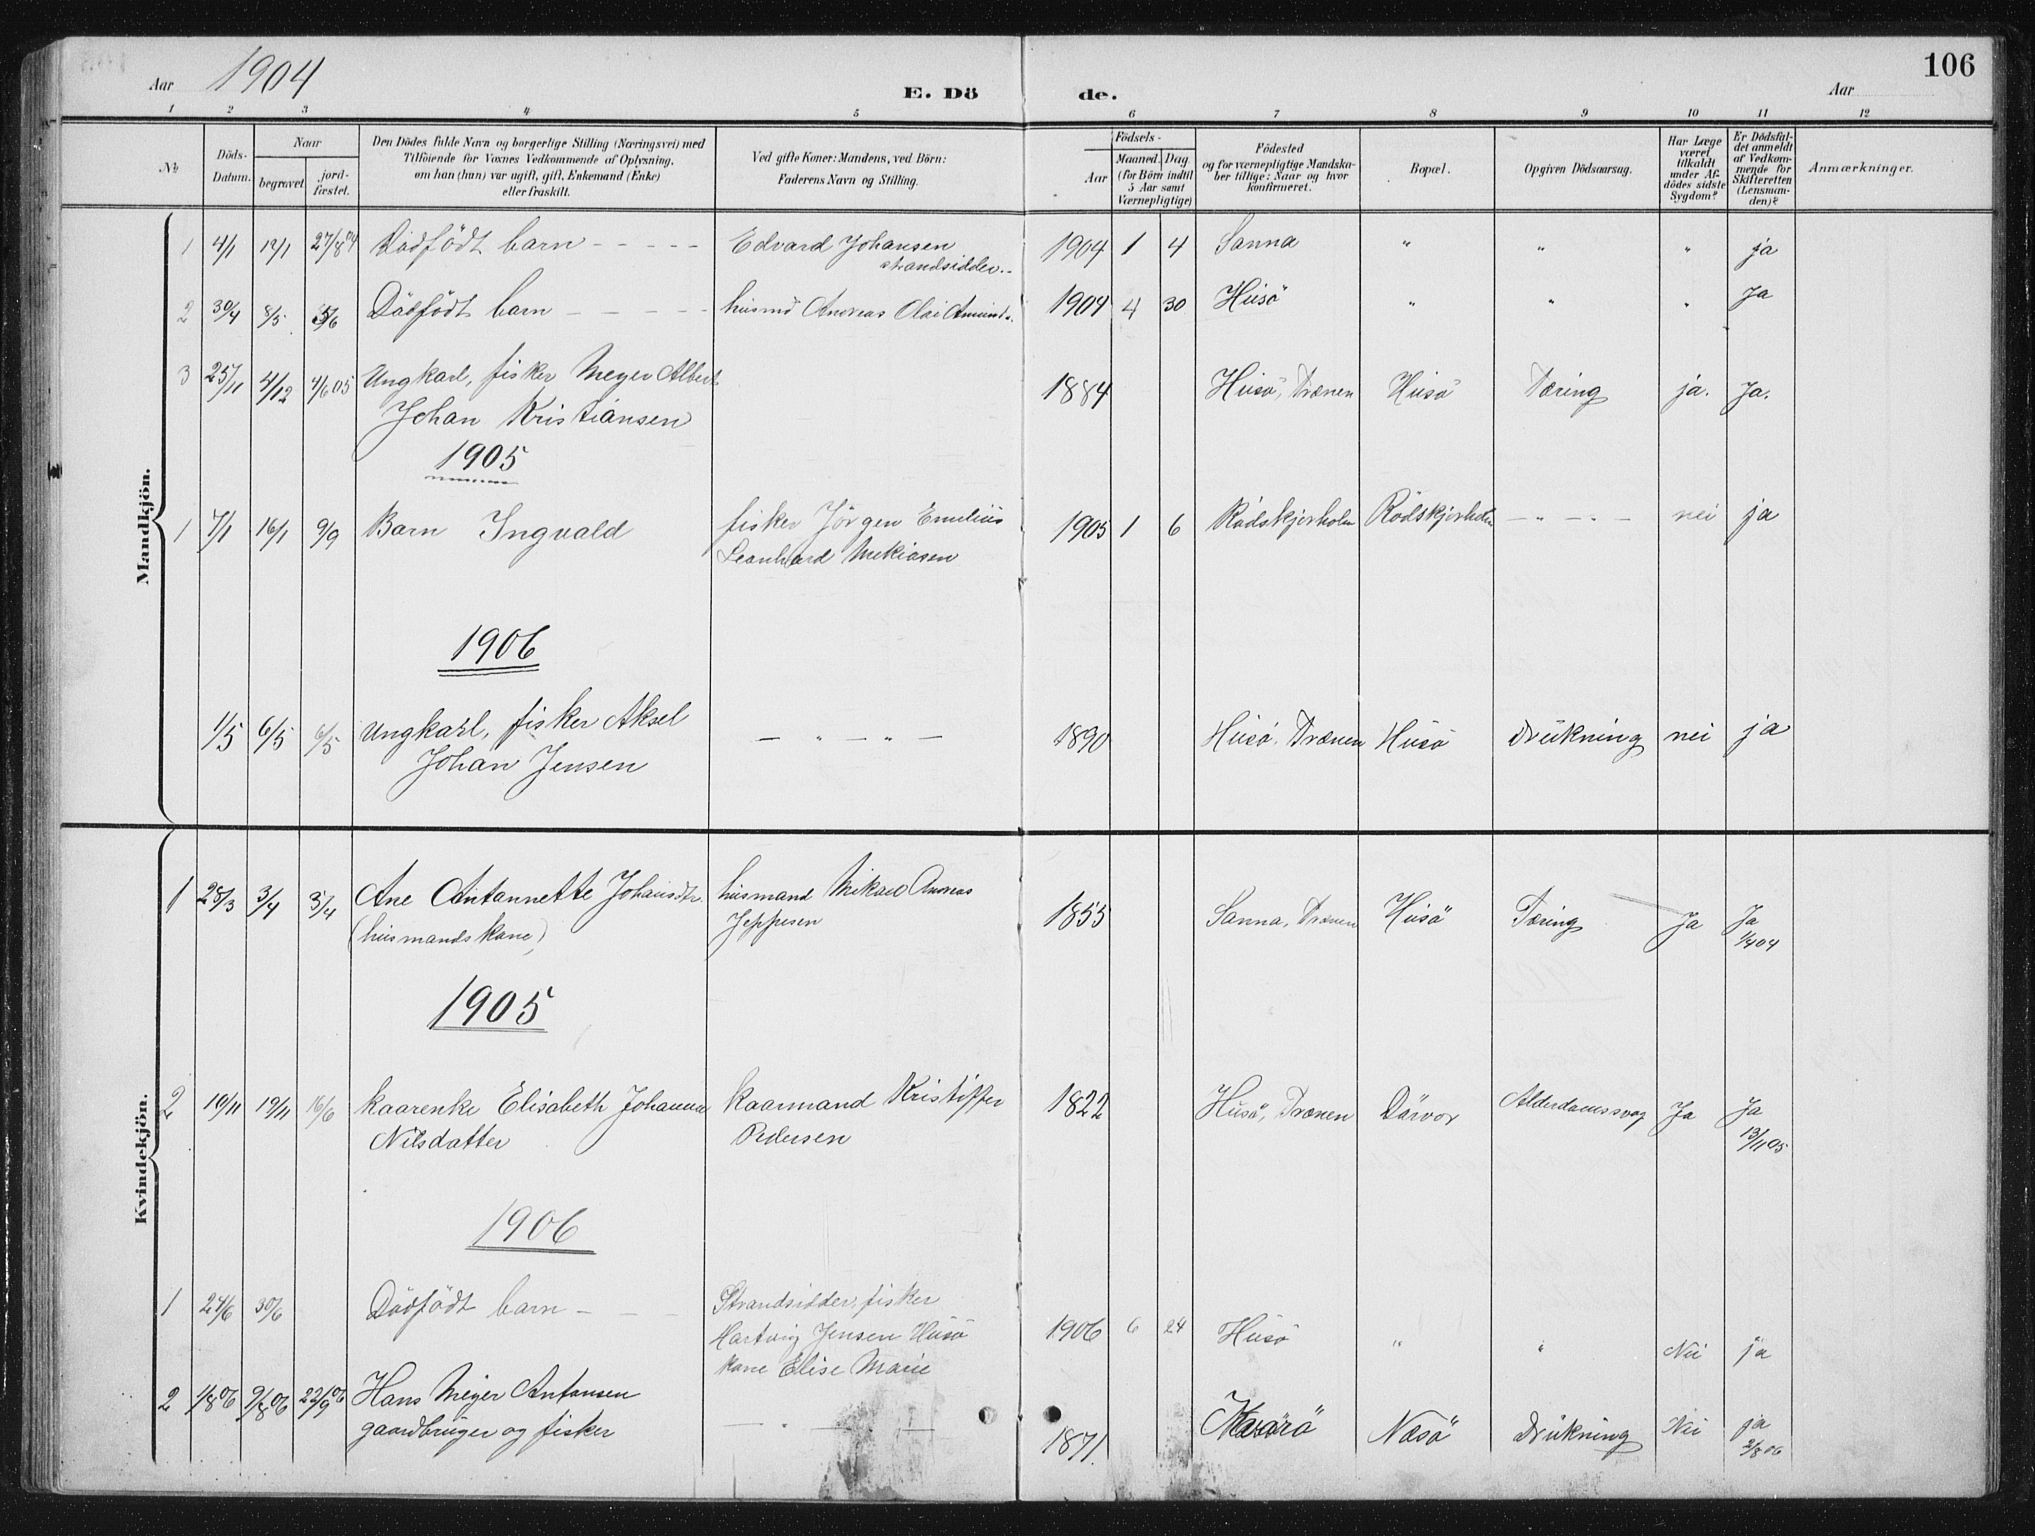 Aar 1904
E. Dö
de.
Aar
106
1 2 3 4 5 6 7 8 9 10 11 12
No
Döds-
Datum.
Naar
begravet
jord-
fæstet.
Den Dödes fulde Navn og borgerlige Stilling (Næringsvei) med
Tilföiende for Voxnes Vedkommende af Oplysning,
om han (hun) var ugift, gift, Enkemand (Enke)
eller fraskilt.
Ved gifte Koner: Mandens, ved Börn:
Faderens Navn og Stilling.
Födsels-
Aar
Maaned. Dag
(for Börn indtil
5 Aar samt
Værnepligtige)
Födested
og for værnepligtige Mandska-
ber tillige: Naar og hvor
konfirmeret.
Bopæl.
Opgiven Dödsaarsag.
Har Læge
været
tilkaldt
under Af-
dödes sidste
Sygdom?
Er Dödsfal-
det anmeldt
af Vedkom-
mende for
Skifteretten
(Lensman-
den)?
Anmærkninger.
Mandkjön.
1 4/1 12/1 27/8 04 Dödfödt barn - - - - - Edvard Johansen 1904 1 4 Sanna " " " ja
strandsidder.
2 30/4 8/5 5/6 Dödfödt barn - - - - - husmd Andreas Olai Amunds. 1904 4 30 Husö " " " Ja
3 25/11 4/12 4/6 05 Ungkarl, fisker Meyer Albert 1884 Husö, Trænen Husö Tæring ja. Ja.
Johan Kristiansen
1905
1 7/1 16/1 9/9 Barn Ingvald fisker Jörgen Emilius 1905 1 6 Rödskjerholm Rödskjerholm - " - " - nei ja
Leonhard Mekiasen
1906
1/5 6/5 6/5 Ungkarl, fisker Aksel - " - " - 1890 Husö, Trænen Husö Drukning nei ja
Johan Jensen
Kvindekjön.
1 28/3 3/4 3/4 Ane Antannette Johansdtr. husmand Mikael Andreas 1855 Sanna, Trænen Husö Tæring Ja Ja
(husmandskone) Jeppesen 1/4 04
1905
2 19/11 19/11 16/6 kaarenke Elisabeth Johanna kaarmand Kristoffer 1822 Husö, Trænen Dörvær Alderdomssvag Ja Ja
Nilsdatter Pedersen 13/11 05
1906
1 24/6 30/6 Dödfödt barn - - - Strandsidder, fisker
Hartvig Jensen Husö 1906 6 24 Husö " " Nei ja
kone Elise Marie
2 1/8 06 9/8 06 22/9 06 Hans Meyer Antonsen - " - 1871. Næsö Drukning Nei ja
gaardbruger og fisker 2/8 06